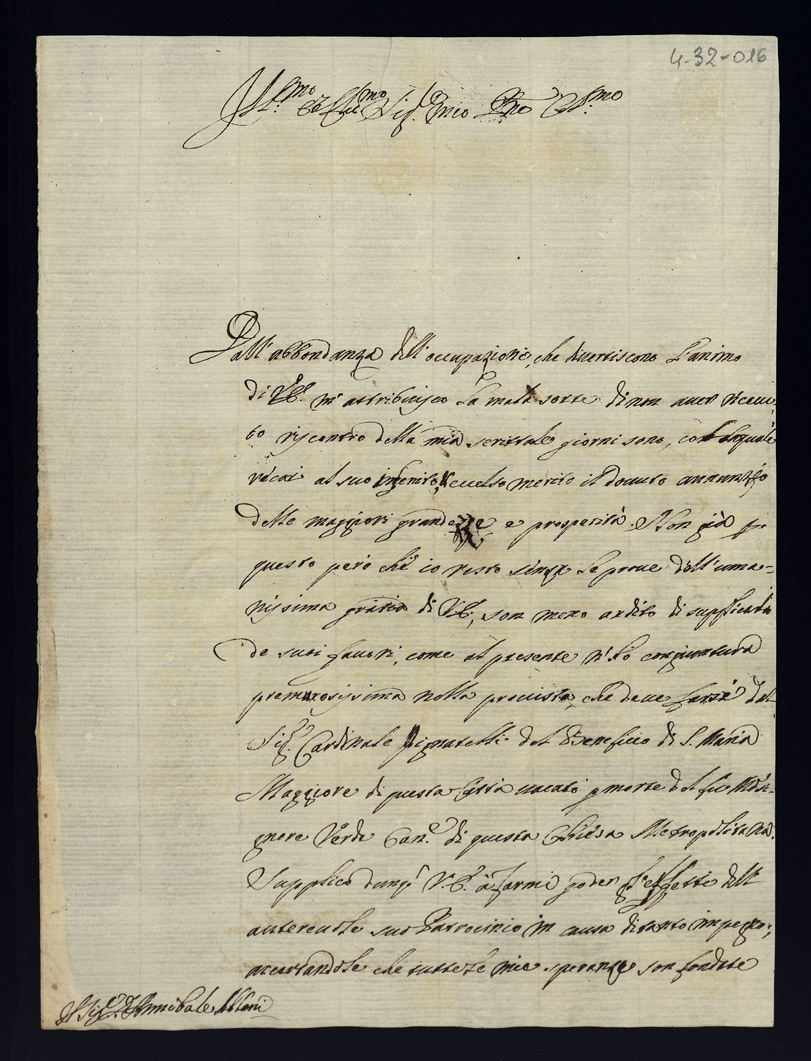 4-32-016
Ill.mo et Ecc.mo Sig.r mio P.rone Col.mo
Dall'abbondanza dell'occupazioni, che divertiscono l'animo
di V.E. m'attribuisco la mala sorte di non aver riceuu-
to riscontro della mia scrittale giorni sono, con la quale
recai al suo infinito, eccelso merito il douuto annunzio
delle maggiori grandezze e prosperità. Non già p.
questo però che io resto senza le proue dell'uma-
nissima grazia di V.E., son meno ardito di supplicarla
de suoi fauori, come al presente n'ho congiuntura
premurosissima nella prouista, che deue farsi dal
Sig.r Cardinale Pignatelli del Beneficio di S. Maria
Maggiore di questa Città uacato p morte del fu Monsi-
gnore Verde Can.co di questa Chiesa Metropolitana.
Supplico dunq. V.E. à farmi goder gl'effetti dell'
autereuole suo Patrocinio in causa di tanto impegno,
accertandole che tutte le mie speranze son fondate
Sig.r D. Annibale Albani